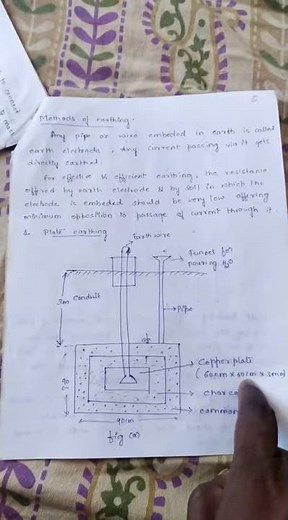 Methods of earthing:
Any pipe or wire embeded in earth is called
earth electrode. Any current passing via it gets
directly earthed.
For effective & efficient earthing, the resistance
offered by earth electrode & by soil in which the
electrode is embeded should be very low offering
minimum opposition to passage of current through it.
1. Plate earthing
Earth wire
Funnel for
pouring H2O
3m Conduit
Pipe
Copper plate
(60cm x 60cm x 3mm)
charco
common
90cm
fig (a)